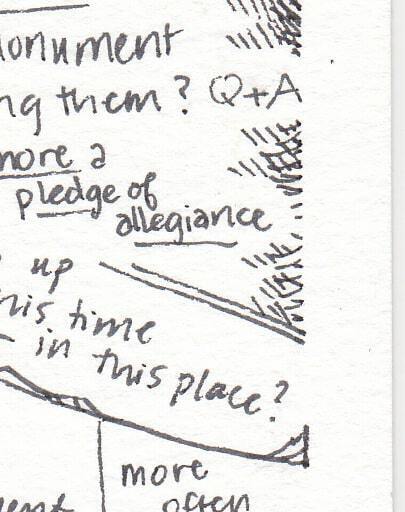 monument
ng them? Q+A
more a
pledge of
allegiance
up
his time
in this place?
more
often